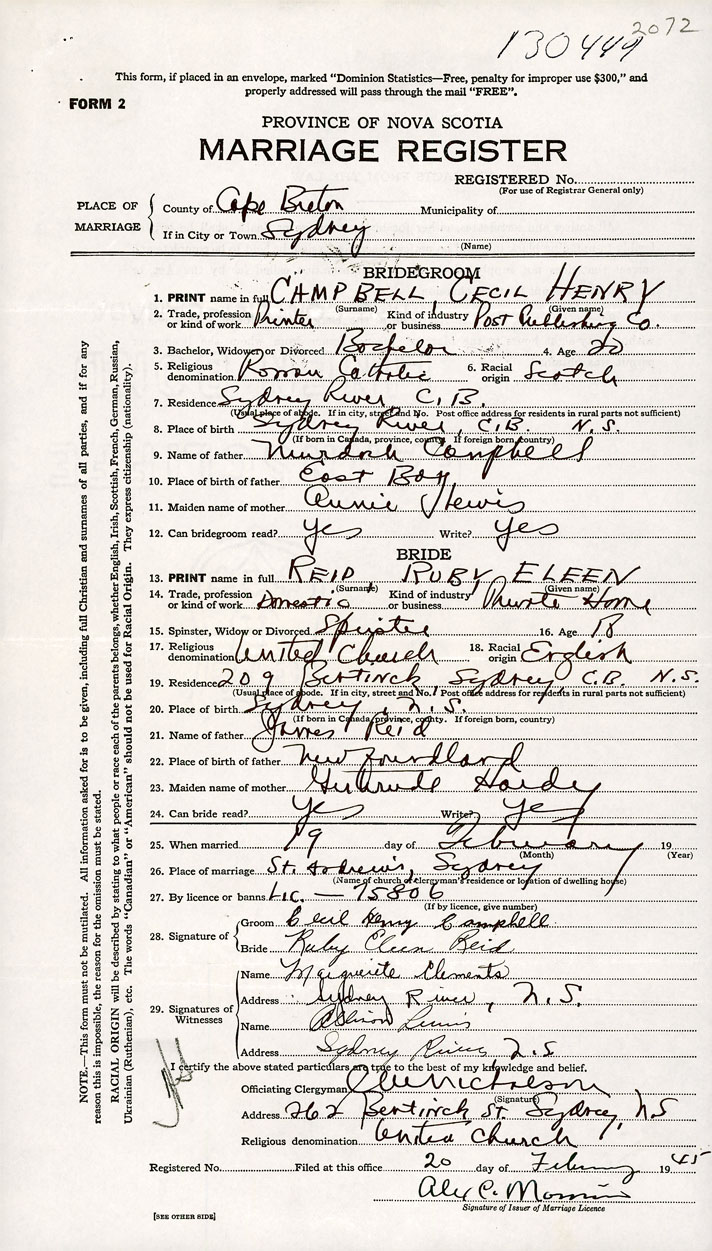 2072
130449
This form, if placed in an envelope, marked "Dominion Statistics—Free, penalty for improper use $300," and
properly addressed will pass through the mail "FREE".
FORM 2
PROVINCE OF NOVA SCOTIA
MARRIAGE REGISTER
REGISTERED No.
(For use of Registrar General only)
PLACE OF MARRIAGE
County of Cape Breton Municipality of
If in City or Town Sydney
(Name)
BRIDEGROOM
1. PRINT name in full CAMPBELL, CECIL HENRY
(Surname) (Given name)
2. Trade, profession or kind of work Printer Kind of industry or business Post Publishing Co.
3. Bachelor, Widower or Divorced Bachelor 4. Age 20
5. Religious denomination Roman Catholic 6. Racial origin Scotch
7. Residence Sydney River C.B.
(Usual place of abode. If in city, street and No. Post office address for residents in rural parts not sufficient)
8. Place of birth Sydney River, C.B. N.S.
(If born in Canada, province, county. If foreign born, country)
9. Name of father Murdoch Campbell
10. Place of birth of father East Bay
11. Maiden name of mother Annie Lewis
12. Can bridegroom read? yes Write? yes
BRIDE
13. PRINT name in full REID, RUBY ELEEN
(Surname) (Given name)
14. Trade, profession or kind of work Domestic Kind of industry or business Private Home
15. Spinster, Widow or Divorced Spinster 16. Age 18
17. Religious denomination United Church 18. Racial origin English
19. Residence 209 Bentinck Sydney, C.B. N.S.
(Usual place of abode. If in city, street and No. Post office address for residents in rural parts not sufficient)
20. Place of birth Sydney, N.S.
(If born in Canada, province, county. If foreign born, country)
21. Name of father James Reid
22. Place of birth of father Newfoundland
23. Maiden name of mother Gertrude Hardy
24. Can bride read? yes Write? yes
25. When married 19 day of February 19
(Month) (Year)
26. Place of marriage St. Andrew's, Sydney
(Name of church or clergyman's residence or location of dwelling house)
27. By licence or banns Lic. — 75806
(If by licence, give number)
28. Signature of
Groom Cecil Henry Campbell
Bride Ruby Eleen Reid
29. Signatures of Witnesses
Name Marguerite Clements
Address Sydney River, N.S.
Name Lewis
Address Sydney River N.S.
I certify the above stated particulars are true to the best of my knowledge and belief.
Officiating Clergyman Nicholson
(Signature)
Address 262 Bentinck St. Sydney, N.S.
Religious denomination United Church
Registered No. Filed at this office 20 day of February 1945
Alex C.
Signature of Issuer of Marriage Licence
[SEE OTHER SIDE]
NOTE.—This form must not be mutilated. All information asked for is to be given, including full Christian and surnames of all parties, and if for any
reason this is impossible, the reason for the omission must be stated.
RACIAL ORIGIN will be described by stating to what people or race each of the parents belongs, whether English, Irish, Scottish, French, German, Russian,
Ukrainian (Ruthenian), etc. The words "Canadian" or "American" should not be used for Racial Origin. They express citizenship (nationality).